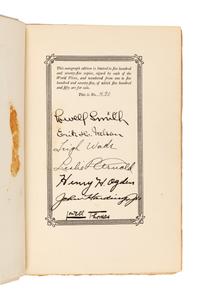 This autograph edition is limited to five hundred
and seventy-five copies, signed by each of the
World Fliers, and numbered from one to five
hundred and seventy-five, of which five hundred
and fifty are for sale.
This is No.
Lowell Smith
Erik H. Nelson
Leigh Wade
Leslie P. Arnold
Henry H. Ogden
John Harding Jr.
Lowell Thomas